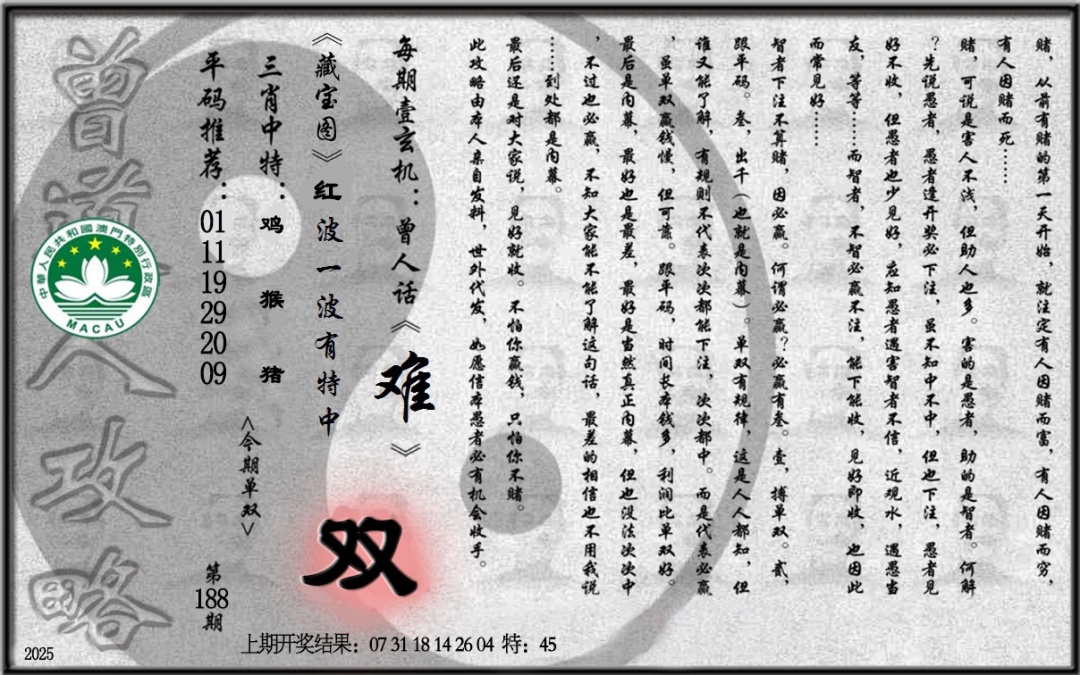 赌，从前有赌的第一天开始，就注定有人因赌而富，有人因赌而穷，
有人因赌而死……
赌，可说是害人不浅，但助人也多。害的是愚者，助的是智者。何解
？先说愚者，愚者逢开奖必下注，虽不知中不中，但也下注，愚者见
好不收，但愚者也少见好，应知愚者遇害智者不信，近观水，遇愚当
友，等等……而智者，不智必赢不注，能下能收，见好即收，也因此
而常见好……
智者下注不算赌，因必赢。何谓必赢？必赢有叁。壹，搏单双。贰，
跟平码。叁，出千（也就是内幕）。单双有规律，这是人人都知，但
谁又能了解，有规则不代表次次都能下注，次次都中。而是代表必赢
，虽单双赢钱慢，但可靠。跟平码，时间长本钱多，利润比单双好。
最后是内幕，最好也是最差，最好是当然真正内幕，但也没法次次中
，不过也必赢，不知大家能不能了解这句话，最差的相信也不用我说
……到处都是内幕。
最后还是对大家说，见好就收。不怕你赢钱，只怕你不赌。
此攻略由本人亲自发料，世外代发，如愿信本愚者必有机会收手。
每期壹玄机：曾人话《难》
《藏宝图》红波一波有特中
双
三肖中特：鸡 猴 猪
<今期单双>
平码推荐：01 11 19 29 20 09
第188期
曾道人攻略
中華人民共和國澳門特別行政區
MACAU
2025
上期开奖结果：07 31 18 14 26 04 特：45